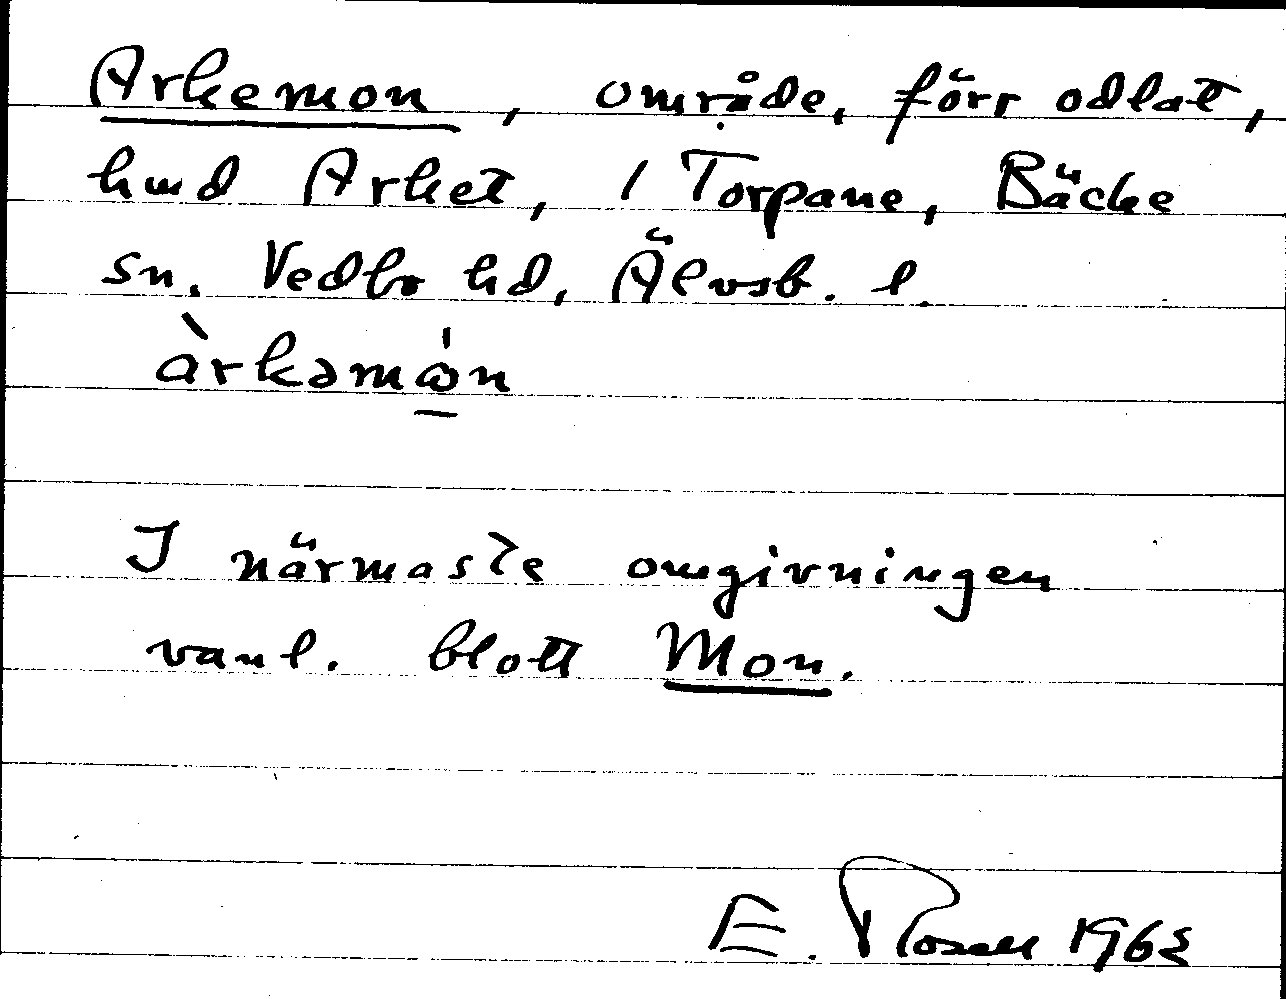 Arkemon, område, förr odlat,
hmd Arket, 1 Torpane, Bäcke
sn. Vedbo hd, Älvsb. l.
àrkəmώ̣n
I närmaste omgivningen
vanl. blott Mon.
E. Rosell